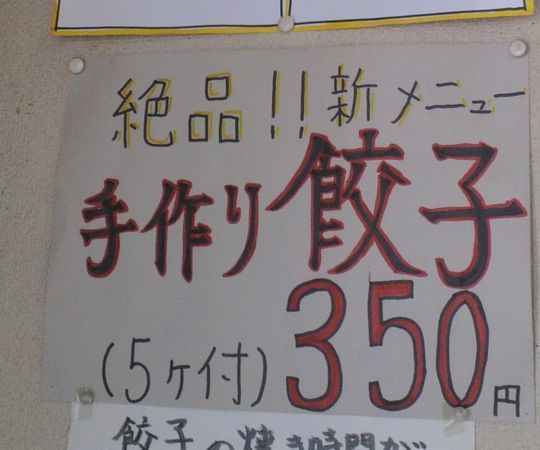 絶品!!新メニュー
手作り餃子
(5ヶ付)350円
餃子の焼き時間が